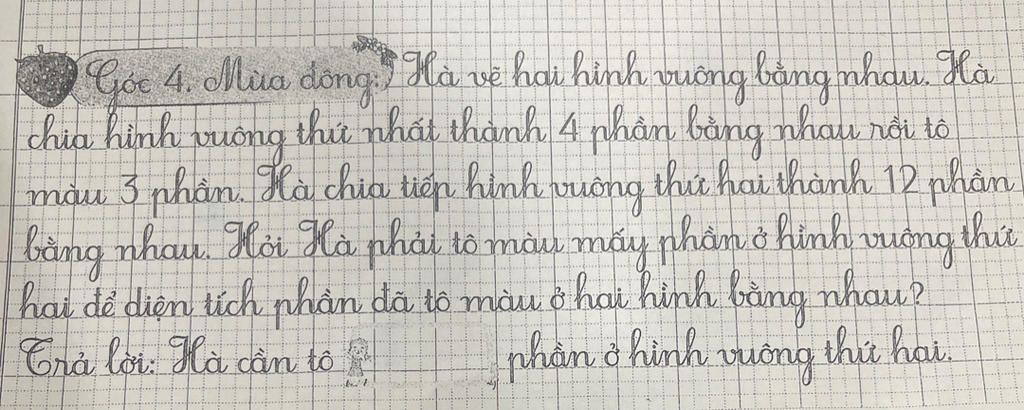 Góc 4. Mùa đông: Hà vẽ hai hình vuông bằng nhau. Hà
chia hình vuông thứ nhất thành 4 phần bằng nhau rồi tô
màu 3 phần. Hà chia tiếp hình vuông thứ hai thành 12 phần
bằng nhau. Hỏi Hà phải tô màu mấy phần ở hình vuông thứ
hai để diện tích phần đã tô màu ở hai hình bằng nhau?
Trả lời: Hà cần tô phần ở hình vuông thứ hai.